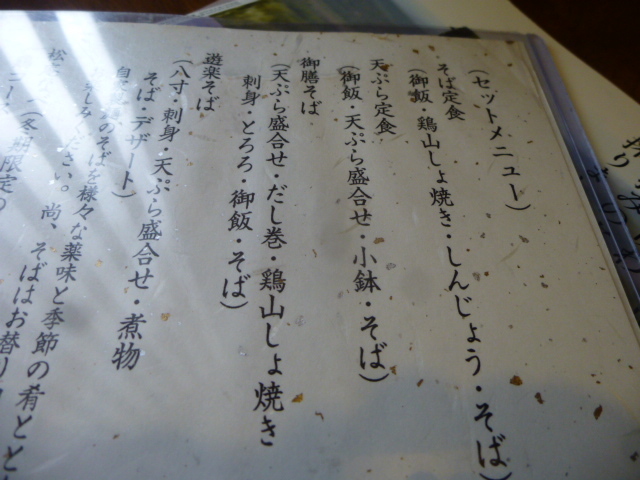 (セットメニュー)
そば定食
(御飯・鶏山しょ焼き・しんじょう・そば)
天ぷら定食
(御飯・天ぷら盛合せ・小鉢・そば)
御膳そば
(天ぷら盛合せ・だし巻・鶏山しょ焼き
刺身・とろろ・御飯・そば)
遊楽そば
(八寸・刺身・天ぷら盛合せ・煮物
そば・デザート)
のそばを様々な薬味と季節の肴とと
しみください。尚、そばはお替り